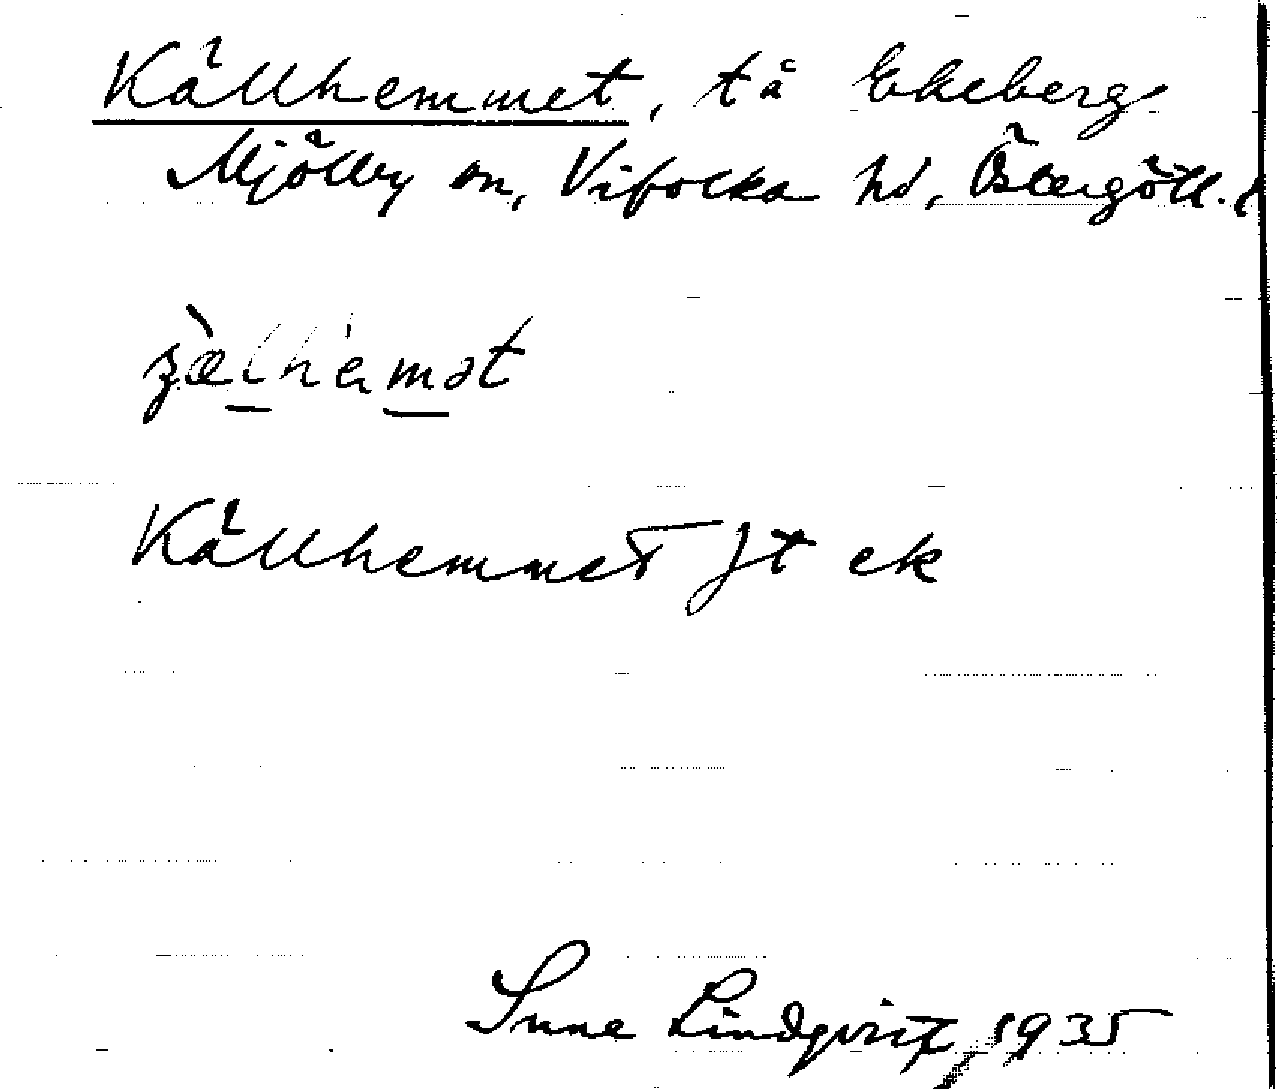 Källhemmet, tå Ekeberg
Mjölby sn, Vifolka hd, Östergötl. l
Källhemmet Jt ek
Sune Lindqvist, 1935